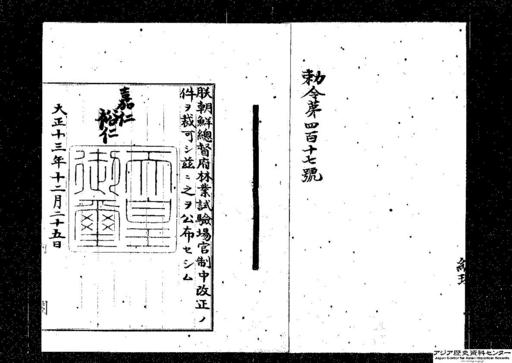 勅令第四百十七號
朕朝鮮總督府林業試驗場官制中改正ノ
件ヲ裁可シ茲ニ之ヲ公布セシム
嘉仁
裕仁
天皇御璽
大正十三年十二月二十五日
アジア歴史資料センター
Japan Center for Asian Historical Records